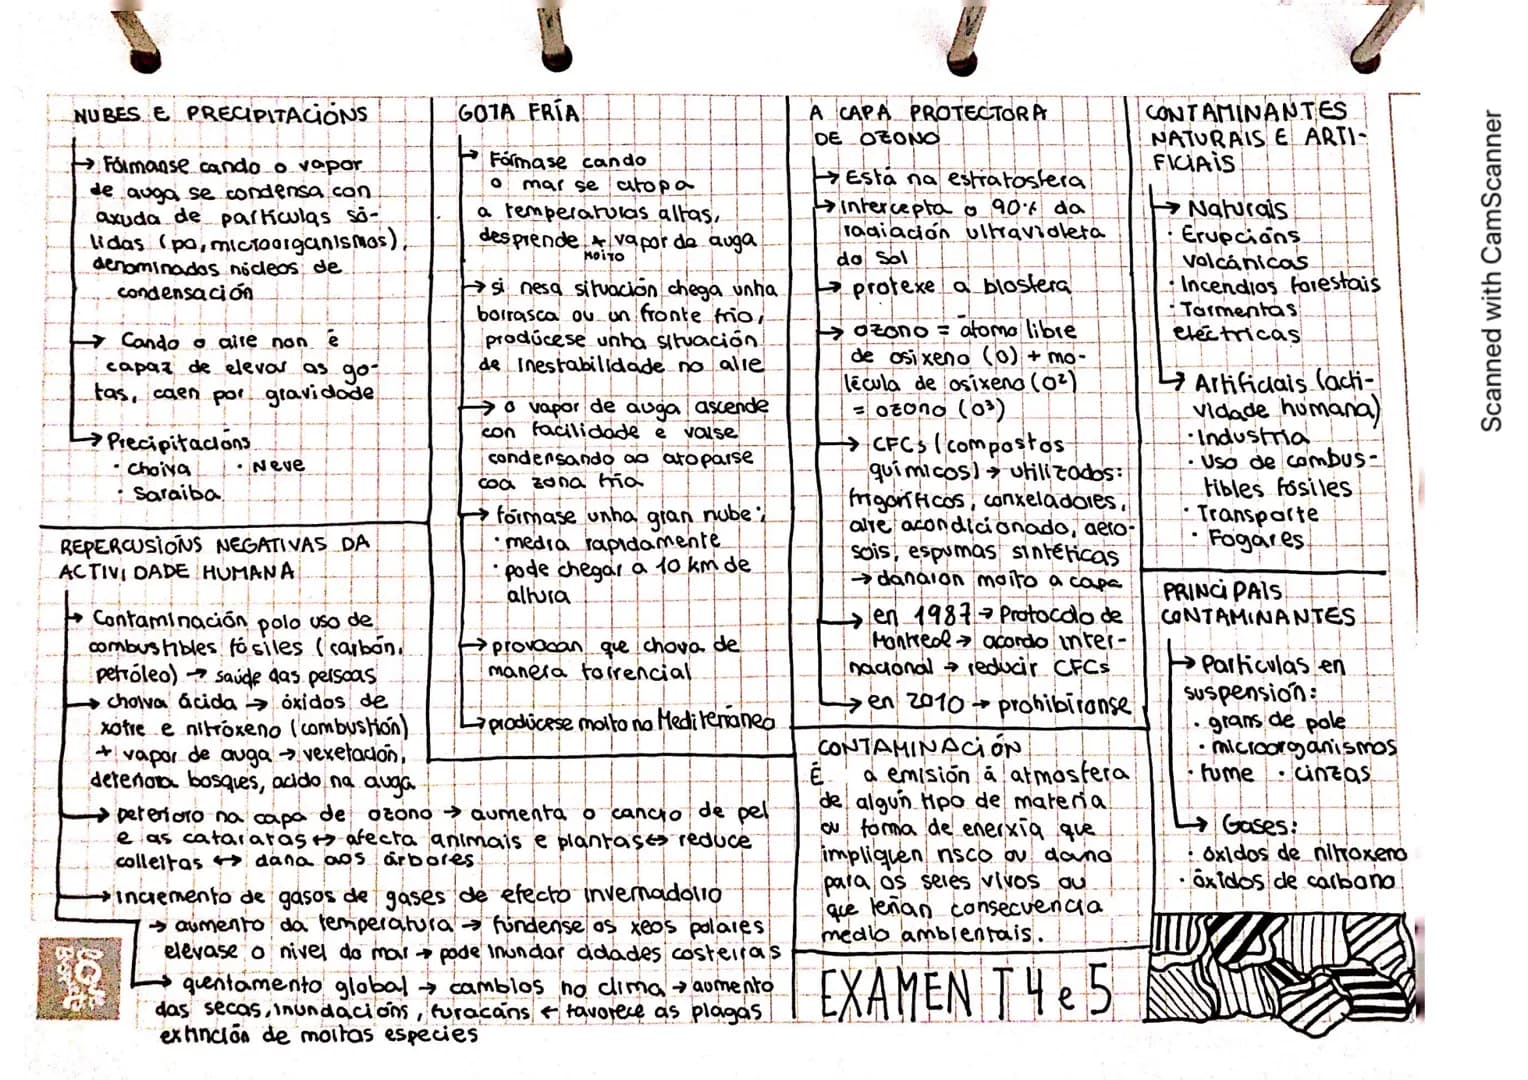 NUBES E PRECIPITACIÓNS
→ Fórmanse cando o vapor
de auga se condensa con
axuda de partículas só-
lidas (po, microorganismos),
denominados núcleos de
condensación
→ Cando o aire non é
capaz de elevar as go-
tas, caen por gravidade
→ Precipitacións
· choiva · Neve
· Saraiba
REPERCUSIÓNS NEGATIVAS DA
ACTIVIDADE HUMANA
→ Contaminación polo uso de
combustibles fósiles (carbón,
petróleo) → saúde das persoas
→ choiva ácida → óxidos de
xofre e nitróxeno (combustión)
+ vapor de auga → vexetación,
deteriora bosques, acido na auga
→ Deterioro na capa de ozono → aumenta o cancro de pel
e as cataratas ↔ afecta animais e plantas ↔ reduce
colleitas ↔ dana aos árbores
→ incremento de gasos de gases de efecto invernadoiro
→ aumento da temperatura → fúndense os xeos polares
elevase o nivel do mar → pode inundar cidades costeiras
→ quentamento global → cambios no clima → aumento
das secas, inundacións, furacáns ← favorece as plagas
extinción de moitas especies
GOTA FRÍA
→ Fórmase cando
o mar se atopa
a temperaturas altas,
desprende + vapor de auga
MOITO
→ si nesa situación chega unha
borrasca ou un fronte frio,
prodúcese unha situación
de inestabilidade no aire
→ o vapor de auga ascende
con facilidade e vaise
condensando ao atoparse
coa zona fría
→ fórmase unha gran nube:
· medra rapidamente
· pode chegar a 10 km de
altura
→ provocan que chova de
maneira torrencial
→ prodúcese moito no Mediterráneo
A CAPA PROTECTORA
DE OZONO
→ Está na estratosfera
→ intercepta o 90% da
radiación ultravioleta
do Sol
→ protexe a biosfera
→ ozono = átomo libre
de osíxeno (O) + mo-
lécula de osíxeno (O²)
= ozono (O³)
→ CFCs (compostos
químicos) → utilizados:
frigoríficos, conxeladores,
aire acondicionado, aero-
sois, espumas sintéticas
→ danaron moito a capa
→ en 1987 → Protocolo de
Montreal → acordo inter-
nacional → reducir CFCs
→ en 2010 → prohibíronse
CONTAMINACIÓN
É a emisión á atmosfera
de algún tipo de materia
ou forma de enerxía que
impliquen risco ou dano
para os seres vivos ou
que teñan consecuencia
medio ambientais.
EXAMEN T4 e 5
CONTAMINANTES
NATURAIS E ARTI-
FICIAIS
→ Naturais
· Erupcións
volcánicas
· Incendios forestais
· Tormentas
eléctricas
→ Artificiais (acti-
vidade humana)
· Industria
· Uso de combus-
tibles fósiles
· Transporte
· Fogares
PRINCIPAIS
CONTAMINANTES
→ Partículas en
suspensión:
· grans de pole
· microorganismos
· fume · cinzas
→ Gases:
· óxidos de nitroxeno
· óxidos de carbono
Scanned with CamScanner